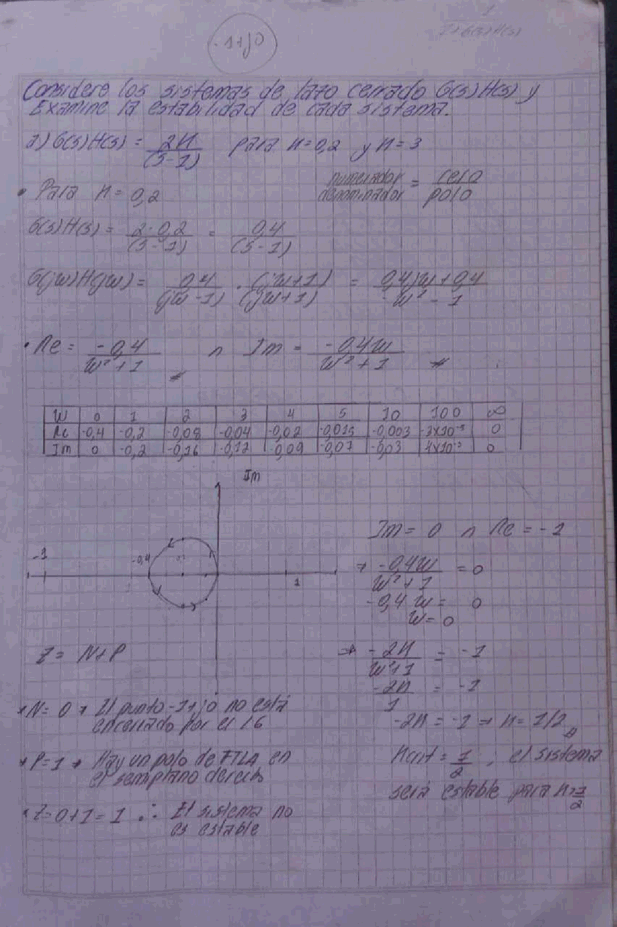 -1+j0
1
Considere los sistemas de lazo cerrado G(s)H(s) y
Examine la estabilidad de cada sistema.
a) G(s)H(s) = 2K/(s-1) para K=0,2 y K=3
numerador/denominador = cero/polo
• Para K=0,2
G(s)H(s) = 2·0,2/(s-1) = 0,4/(s-1)
G(jw)H(jw) = 0,4/(jw-1) · (jw+1)/(jw+1) = 0,4jw+0,4/-w²-1
• Re = -0,4/w²+1 ∩ Im = -0,4w/w²+1
W 0 1 2 3 4 5 10 100 ∞
Re -0,4 -0,2 -0,08 -0,04 -0,02 -0,015 -0,003 0
Im 0 -0,2 -0,16 -0,12 -0,09 -0,07 -0,03 0
Im
-0,4
1
Im = 0 ∩ Re = -1
→ -0,4w/w²+1 = 0
-0,4w = 0
w = 0
Z = N+P
⇒ -2K/w²+1 = -1
-2K/1 = -1
-2K = -1 → K = 1/2
• N=0 → El punto -1+j0 no está
encerrado por el LG
• P=1 → Hay un polo de FTLA en
el semiplano derecho
• Z=0+1=1 ∴ El sistema no
es estable
Kcrit = 1/2, el sistema
será estable para K≥1/2